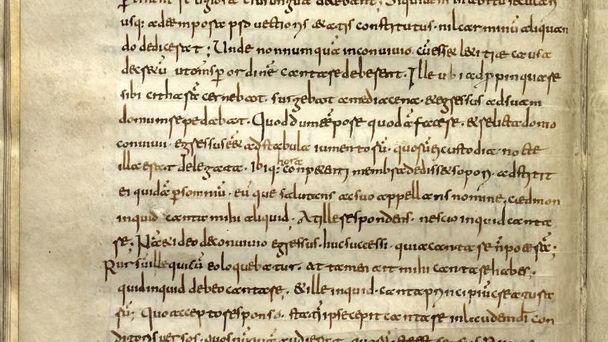 usq; ad tempora puectioris ætatis constitutus. nil carminū aliquan
do dedicerat; Unde nonnumquā inconuiuio. cū esset lætitiæ causa
decretū ut oms̄ per ordinē cantare deberent. Ille ubi adppinquare
sibi citharā cernebat. surgebat amedia cena. & egressus adsuam
domum repedabat. Quod dum tempore quodā faceret. & relicta domo
conuiuii egressus eēt adstabula iumentorū. quorū ei custodia nocte
illa erat delegata. ibiq; hora conpetenti membra dedisset sopori. adstitit
ei quidā p somniū. eūque salutans acsuo appellans nomine. cædmon
inquid canta mihi aliquid. At ille respondens. nescio inquid canta
re; Nā & ideo deconuiuio egressus. huc secessi. quia cantare ñ poterā;
Rursū ille qui cū eo loquebatur. at tamen ait mihi cantare habes.
quid inquid debeo cantare. & ille inquid. canta principiū creatura
rū; Quo accepto responso. statī ipse cepit cantare inlaudem dī con